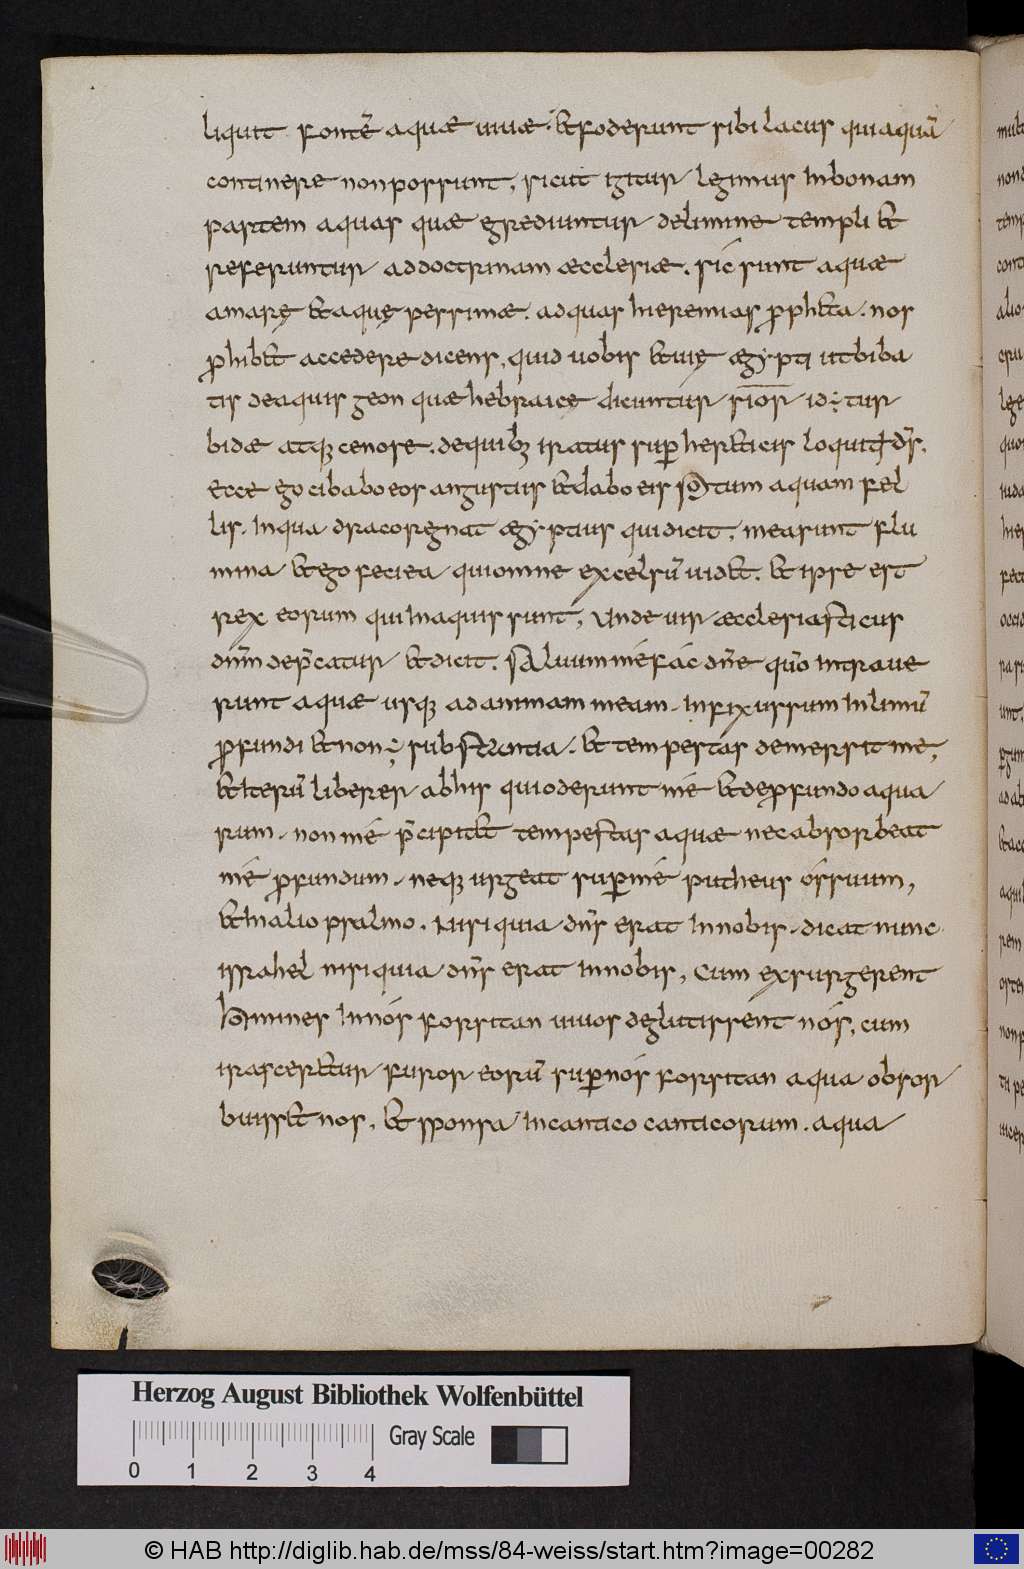 liquit fontē aquae uiuae. & foderunt sibi lacus qui aquā
continere non possunt; sicut igitur legimus in bonam
partem aquas quae egrediuntur de limine templi &
referuntur ad doctrinam aecclesiae. sic sunt aquae
amarę & aquę pessimae. ad quas hieremias proph&a. nos
prohib& accedere dicens, quid uobis & uię aegypti ut biba
tis de aquis geon quae hebraicę dicuntur sior id ÷ tur
bidae atq; cenose. de quib; iratus sup her&icis loquit dn̄s.
ecce ego cibabo eos angustiis & dabo eis potum aquam fel
lis. In qua draco regnat aegyptius qui dicit; mea sunt flu
mina & ego feci ea qui omne excelsū uid&. & ipse est
rex eorum qui in aquis sunt; Unde uir aecclesiasticus
dnm̄ dep̄catur & dicit. saluum me fac dn̄e quō intraue
runt aquae usq; ad animam meam. Infixus sum in limū
profundi & non ÷ substantia. & tempestas demersit me;
& iterū liberer ab his qui oderunt me & de profundo aqua
rum. non me p̄cipit& tempestas aquae nec absorbeat
me profundum. neq; urgeat super me putheus os suum;
& in alio psalmo. Nisi quia dn̄s erat in nobis. dicat nunc
issrahel nisi quia dn̄s erat in nobis; Cum exsurgerent
homines in nos forsitan uiuos deglutissent nos; cum
irascer&ur furor eorū super nos forsitan aqua obsor
buiss& nos. & sponsa in cantico canticorum. aqua
Herzog August Bibliothek Wolfenbüttel
Gray Scale
0 1 2 3 4
© HAB http://diglib.hab.de/mss/84-weiss/start.htm?image=00282